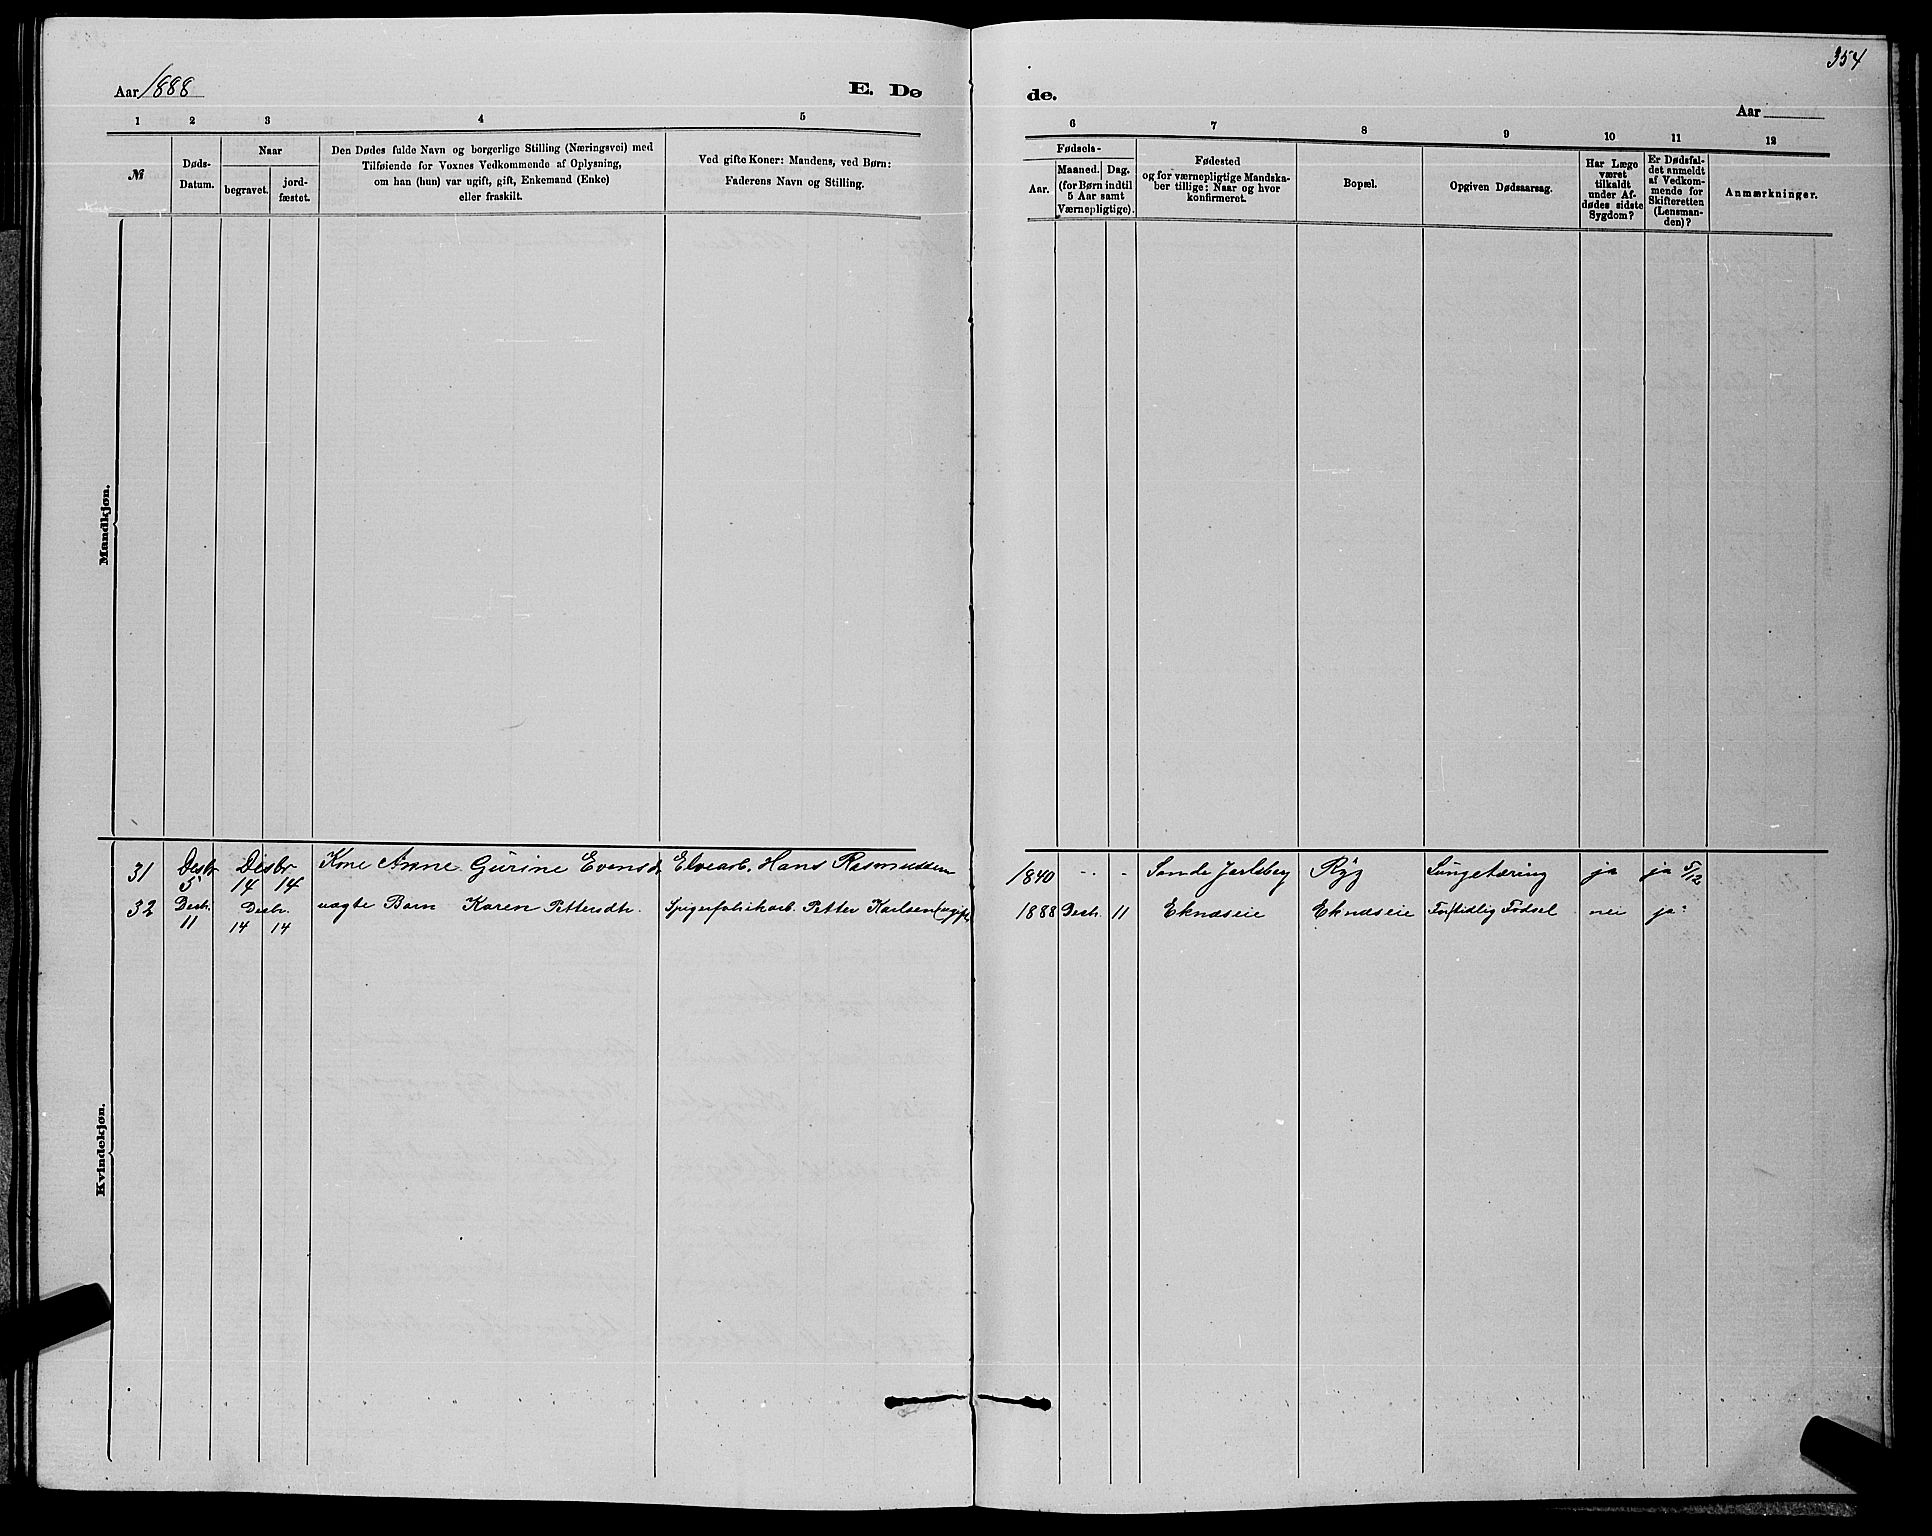 354
Aar 1888
E. Dø
de.
Aar
1 2 3 4 5
6 7 8 9 10 11 12
№
Døds-
Datum.
Naar
begravet.
jord-
fæstet.
Den Dødes fulde Navn og borgerlige Stilling (Næringsvei) med
Tilføiende for Voxnes Vedkommende af Oplysning,
om han (hun) var ugift, gift, Enkemand (Enke)
eller fraskilt.
Ved gifte Koner: Mandens, ved Børn:
Faderens Navn og Stilling.
Fødsels-
Aar.
Maaned. Dag.
(for Børn indtil
5 Aar samt
Værnepligtige).
Fødested
og for værnepligtige Mandska-
ber tillige: Naar og hvor
konfirmeret.
Bopæl.
Opgiven Dødsaarsag.
Har Læge
været
tilkaldt
under Af-
dødes sidste
Sygdom?
Er Dødsfal-
det anmeldt
af Vedkom-
mende for
Skifteretten
(Lensman-
den)?
Anmærkninger.
Mandkjøn.
Kvindekjøn.
31 Desbr 5 Desbr 14 14 Kone Anne Gurine Evensd. Elvearb. Hans Rasmussen 1840 - - - Sande Jarlsberg Ryg Lungetæring ja ja 5/12
32 Desbr. 11 Desbr. 14 14 uægte Barn Karen Pettersdtr. Spigerfabrikarb. Petter Karlsen (ugift) 1888 Desbr. 11 Eknæseie Eknæseie Fortidlig Fødsel nei ja